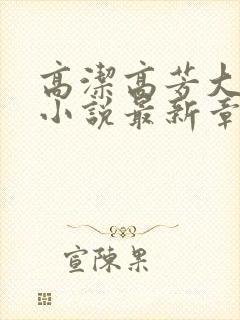 高潔高芳大
小說最新章
宣陳果